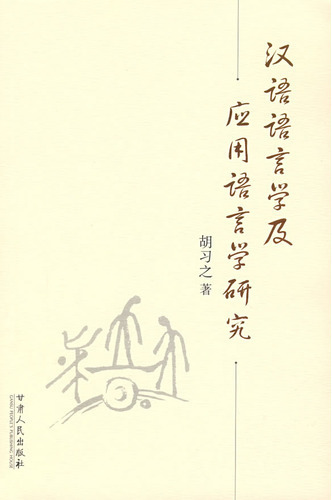 汉语语言学及
应用语言学研究
胡习之 著
甘肃人民出版社
GANSU PEOPLE'S PUBLISHING HOUSE